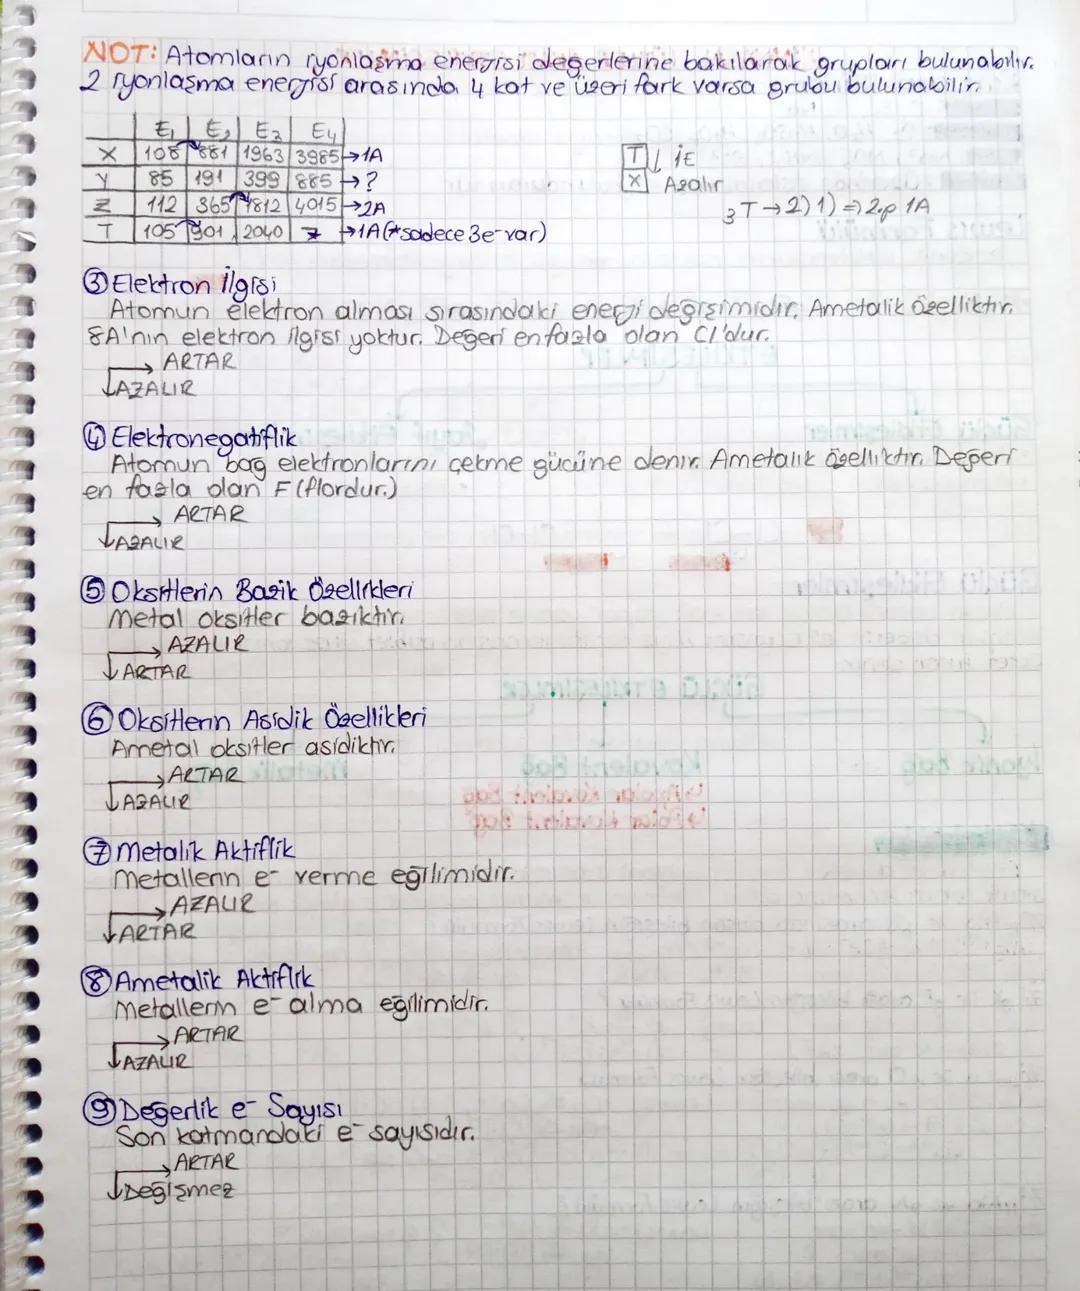 NOT: Atomların iyonlaşma enerjisi değerlerine bakılarak grupları bulunabilir.
2 iyonlaşma enerjisi arasında 4 kat ve üzeri fark varsa grubu bulunabilir.
E1 E2 E3 E4
X 108 881 1963 3985 →1A
Y 85 191 399 885 →?
Z 112 365 1812 4015 →2A
T 105 901 2040 →1A(*sadece 3e- var)
T ↓ İE
X Azalır
3T→2)1)⇒2.p 1A
③ Elektron İlgisi
Atomun elektron alması sırasındaki enerji değişimidir. Ametalik özelliktir.
8A'nın elektron ilgisi yoktur. Değeri en fazla olan Cl'dur.
→ ARTAR
↓AZALIR
④ Elektronegatiflik
Atomun bağ elektronlarını çekme gücüne denir. Ametalik özelliktir. Değeri
en fazla olan F(flordur.)
→ ARTAR
↓AZALIR
⑤ Oksitlerin Bazik Özellikleri
Metal oksitler baziktir.
→ AZALIR
↓ARTAR
⑥ Oksitlerin Asidik Özellikleri
Ametal oksitler asidiktir.
→ ARTAR
↓AZALIR
⑦ Metalik Aktiflik
Metallerin e- verme eğilimidir.
→ AZALIR
↓ARTAR
⑧ Ametalik Aktiflik
Metallerin e- alma eğilimidir.
→ ARTAR
↓AZALIR
⑨ Değerlik e- Sayısı
Son katmandaki e- sayısıdır.
→ ARTAR
↓Değişmez